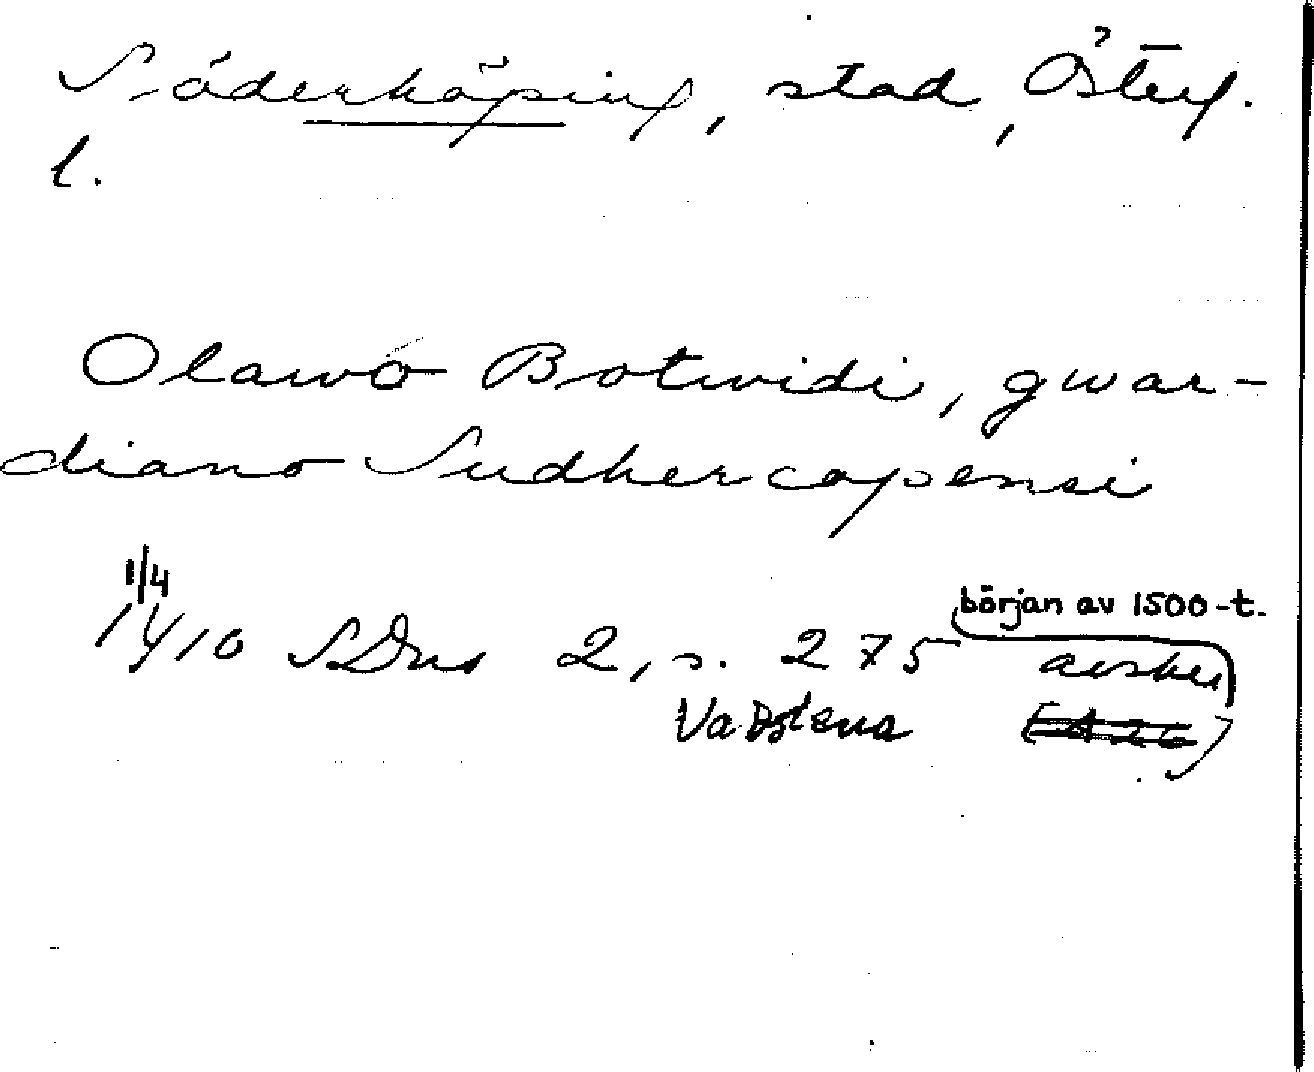 Söderköping, stad, Österg.
l.
Olawo Botwidi, gwar-
diano Sudhercopensi
1/4
1410 SDns 2, s. 275 början av 1500-t.
avskr
Vadstena